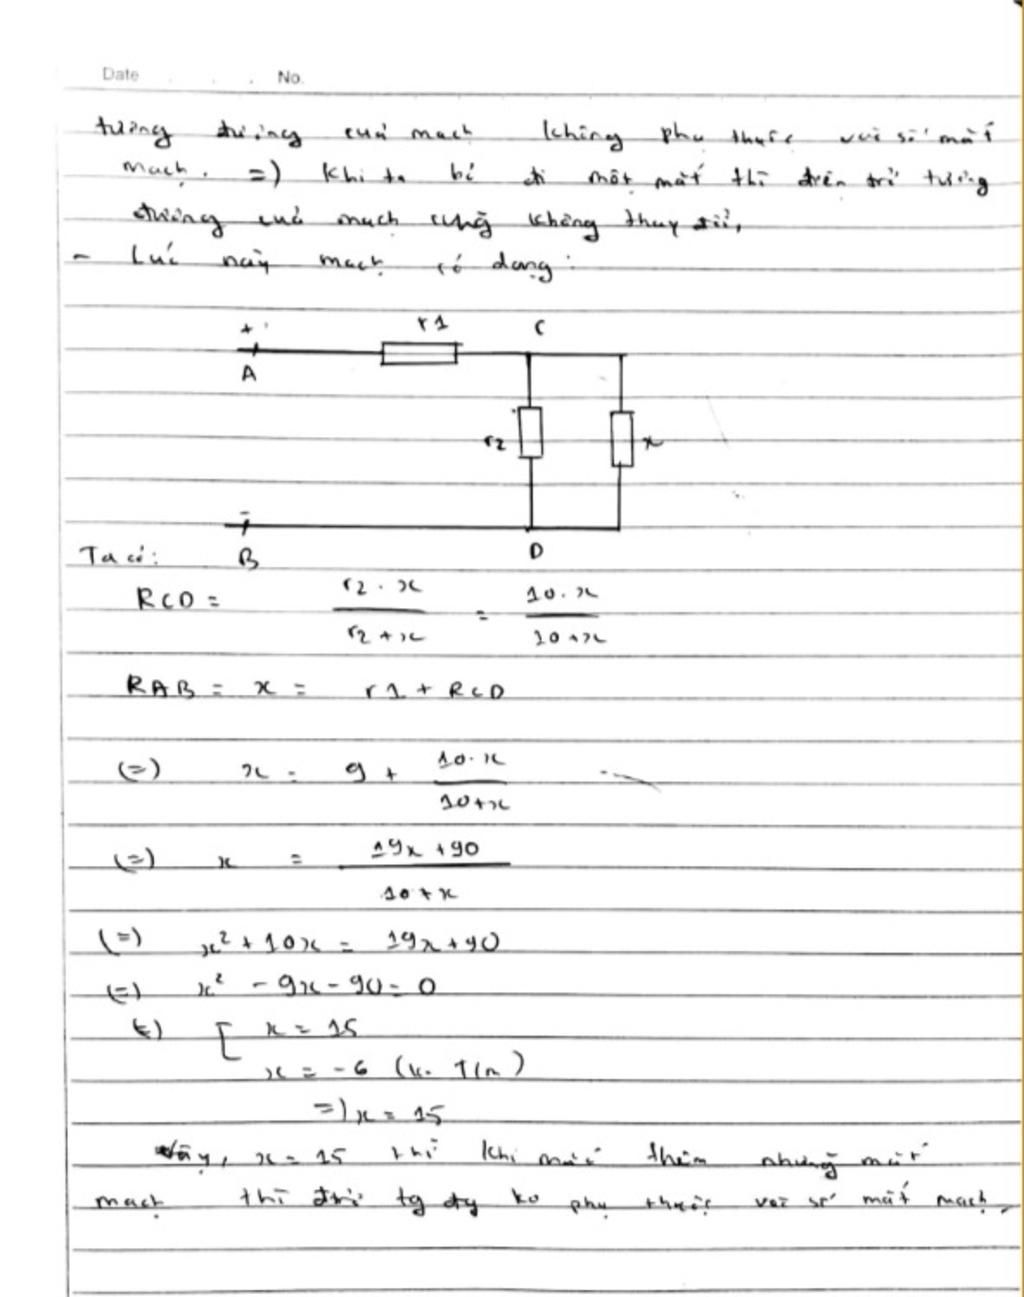 Date . . . No.
tương đương của mạch không phụ thuộc với số mắt
mạch. =) Khi ta bỏ đi một mắt thì điện trở tương
đương của mạch cũng không thay đổi,
- Lúc này mạch có dạng:
+ r1 C
A
r2 x
-
B D
Ta có:
RCD = r2 . x / r2 + x = 10. x / 10 + x
RAB = x = r1 + RCD
(=) x = 9 + 10. x / 10 + x
(=) x = 19x + 90 / 10 + x
(=) x² + 10x = 19x + 90
(=) x² - 9x - 90 = 0
(=) [ x = 15
x = -6 (k. T/m)
=) x = 15
Vậy, x = 15 thì khi mắc thêm những mắt
mạch thì đtrở tg đg ko phụ thuộc với số mắt mạch.